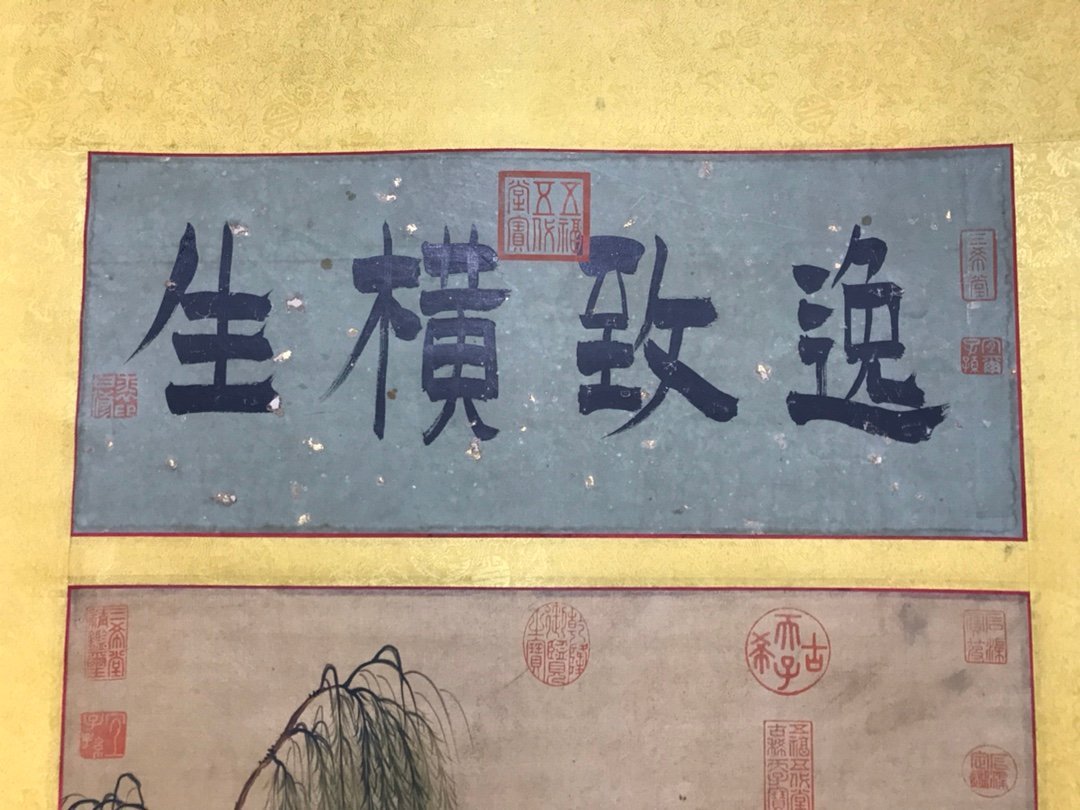 逸致橫生
三希堂
宜爾子孫
五福五代堂寶
三希堂精鑑璽
宜子孫
乾隆御覽之寶
古希天子
五福五代堂古稀天子寶